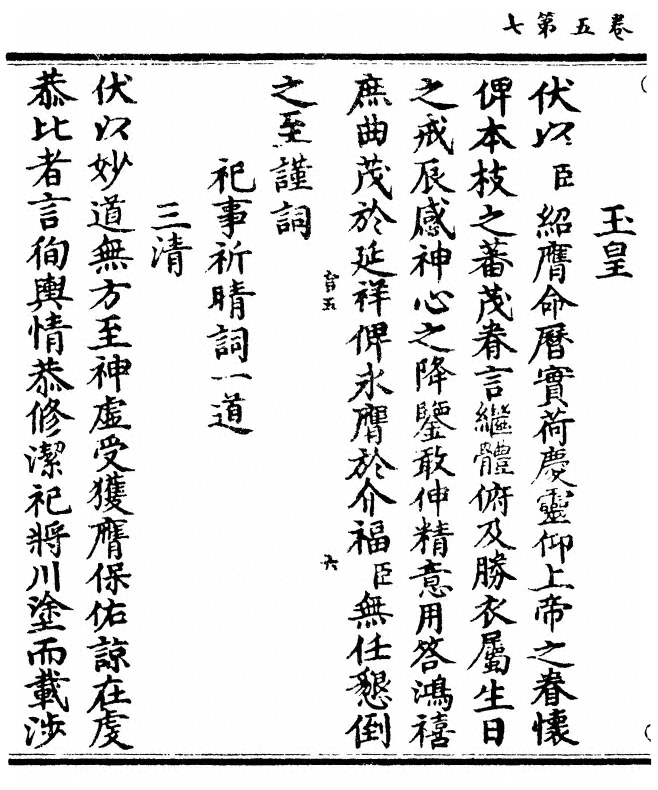 卷五第七
玉皇
伏以臣紹膺命曆實荷慶靈仰上帝之眷懷
俾本枝之蕃茂眷言繼體俯及勝衣屬生日
之戒辰感神心之降鑒敢伸精意用答鴻禧
庶曲茂於延祥俾永膺於介福臣無任懇倒
之至謹詞
祀事祈晴詞一道
三清
伏以妙道無方至神虛受獲膺保佑諒在虔
恭比者言徇輿情恭修潔祀將川塗而載涉